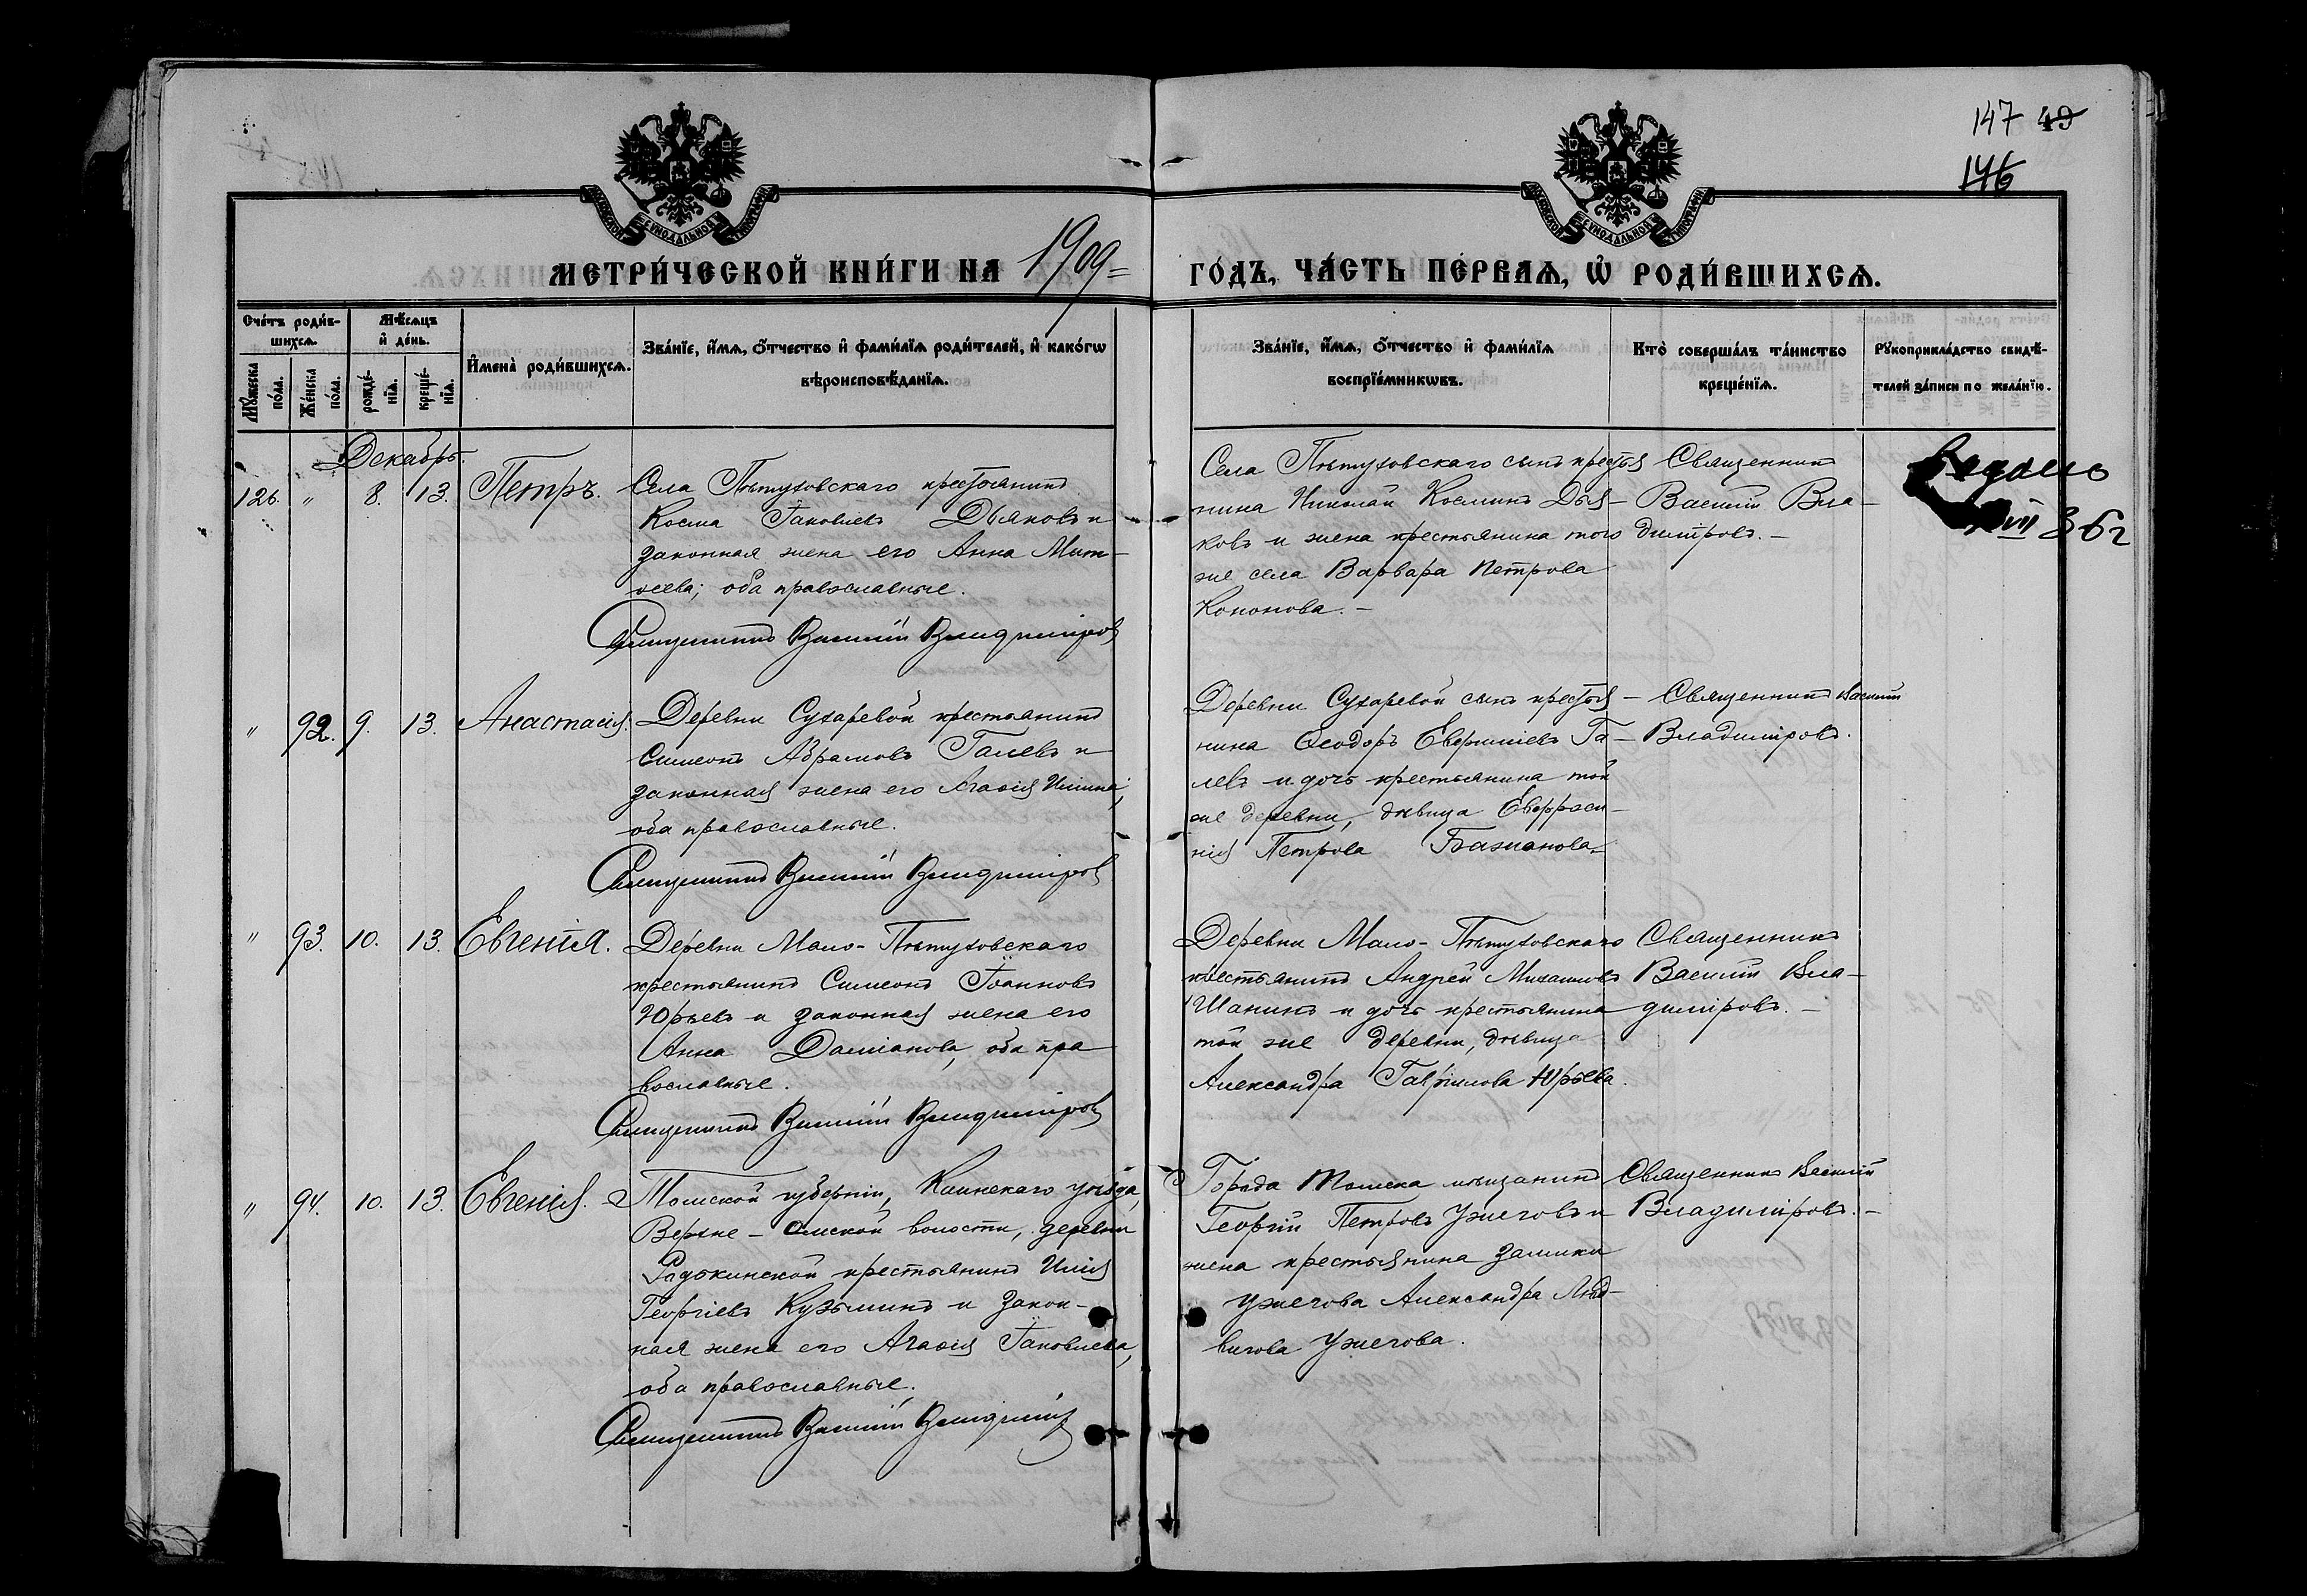 147 49
146
МОСКОВСКОЙ СѴНОДАЛЬНОЙ ТИПОГРАФІИ
МОСКОВСКОЙ СѴНОДАЛЬНОЙ ТИПОГРАФІИ
МЕТРИ́ЧЕСКОЙ КНИ́ГИ НА 1909 =
ГО́ДЪ, ЧА́СТЬ ПЕ́РВАѦ, Ѽ РОДИ́ВШИХСѦ.
Сче́тъ роди́в-
шихсѧ.
Мѣ́сѧцъ
и҆ де́нь.
Мꙋ́жеска
по́ла.
Же́нска
по́ла.
рожде́-
нїѧ.
креще́-
нїѧ.
И҆мена̀ роди́вшихсѧ.
Зва́нїе, и҆́мѧ, ѻ҆́тчество и҆ фами́лїѧ роди́телей, и҆ како́гѡ
вѣроисповѣ́данїѧ.
Зва́нїе, и҆́мѧ, ѻ҆́тчество и҆ фами́лїѧ
воспрїе́мникѡвъ.
Кто̀ соверша́лъ та́инство
креще́нїѧ.
Рꙋкоприкла́дство свидѣ́-
телей за́писи по жела́нїю.
Декабрь.
126. " 8. 13. Петръ.
Села Пѣтуховскаго крестьянинъ
Косма Іаковлевъ Дьяковъ и
законная жена его Анна Мат-
ѳеева; оба православные.
Священникъ Василій Владиміровъ
Села Пѣтуховскаго сынъ крестья
нина Николай Косминъ Дья-
ковъ и жена крестьянина того
же села Варвара Петрова
Кононова. –
Священникъ
Василій Вла-
диміровъ. –
" 92. 9. 13. Анастасія.
Деревни Сухаревой крестьянинъ
Симеонъ Абрамовъ Галевъ и
законная жена его Агаѳія Ильина,
оба православные.
Священникъ Василій Владиміровъ
Деревни Сухаревой сынъ крестья –
нина Ѳеодоръ Евфиміевъ Га –
левъ и дочь крестьянина той
же деревни, дѣвица Евфроси-
нія Петрова Бажанова =
Священникъ Василій
Владиміровъ.
" 93. 10. 13. Евгенія.
Деревни Мало-Пѣтуховскаго
крестьянинъ Симеонъ Іоанновъ
Юрьевъ и законная жена его
Анна Даміанова, оба пра
вославные.
Священникъ Василій Владиміровъ
Деревни Мало-Пѣтуховскаго
крестьянинъ Андрей Михаиловъ
Шанинъ и дочь крестьянина
той же деревни, дѣвица
Александра Гавріилова Юрьева.
Священникъ
Василій Вла-
диміровъ. –
" 94. 10. 13. Евгенія.
Томской губерніи, Каинскаго уѣзда,
Верхне-Омской волости, деревни
крестьянинъ Илія
Георгіевъ Кузьминъ и закон-
ная жена его Агаѳія Іаковлева,
оба православные.
Священникъ Василій Владиміровъ
Города Томска мѣщанинъ
Георгій Петровъ Ужеговъ и
жена крестьянина заимки
Ужегова Александра Люд-
вигова Ужегова.
Священникъ Василій
Владиміровъ. –
VII 36 г